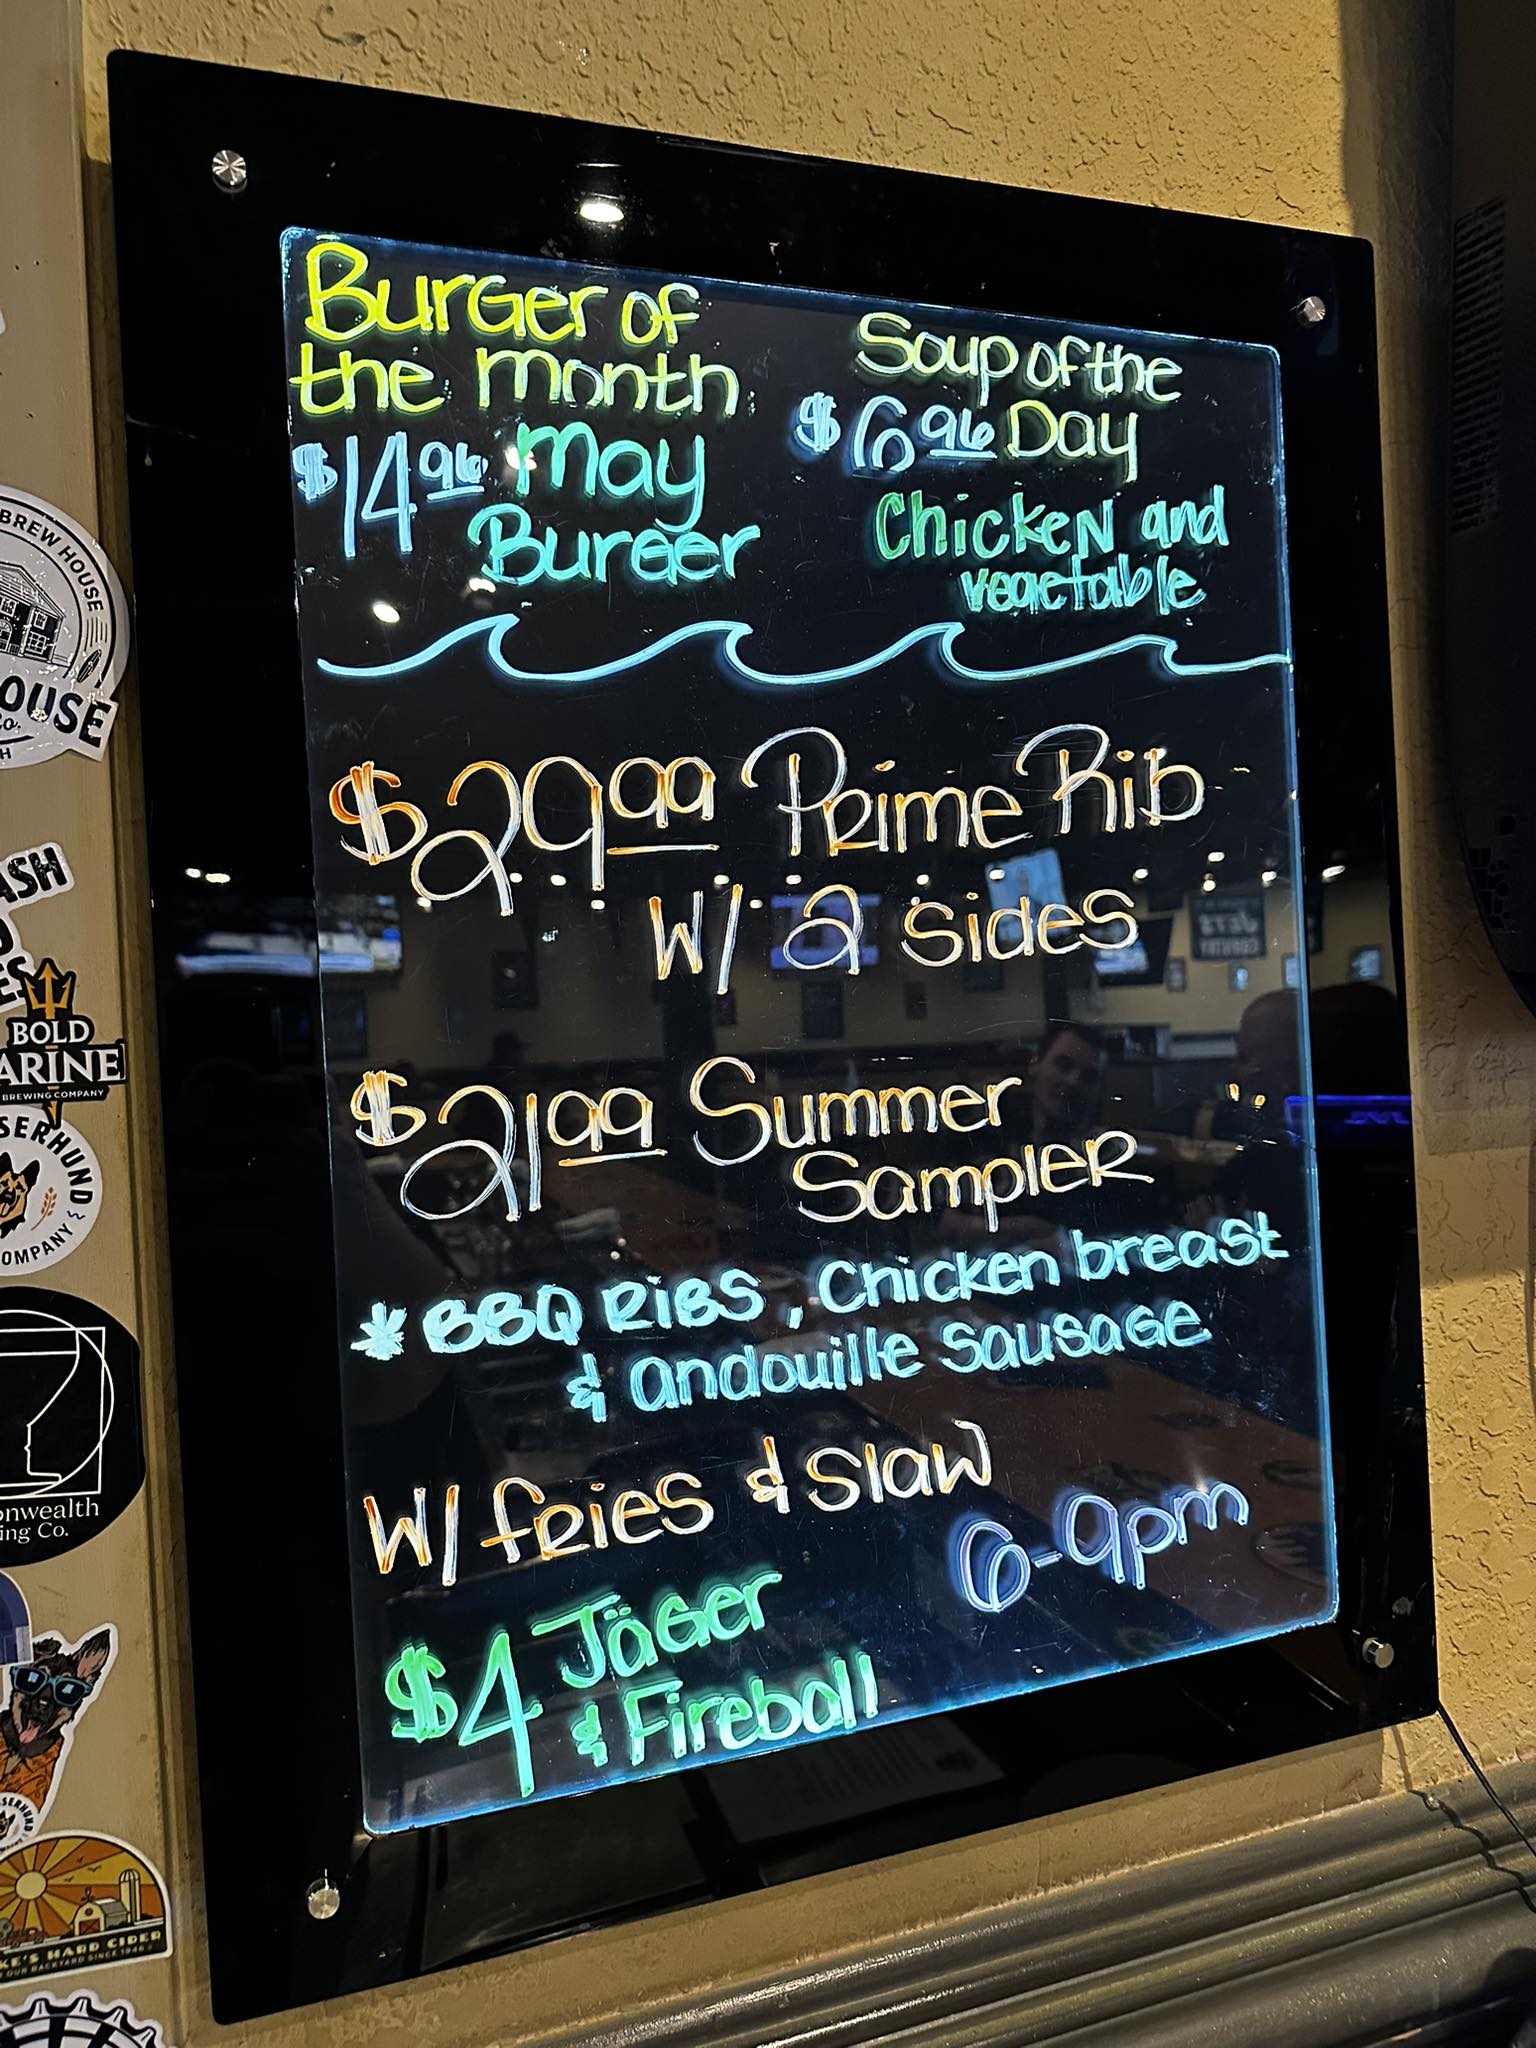 Burger of
the month
$14.96 May
Burger
Soup of the
$6.96 Day
Chicken and
vegetable
$29.99 Prime Rib
W/ 2 sides
$21.99 Summer
Sampler
* BBQ Ribs, Chicken breast
& andouille sausage
W/ fries & slaw
6-9pm
$4 Jäger
& Fireball
BREW HOUSE
OUSE
Co.
ASH
BOLD
ARINE
BREWING COMPANY
SERHUND
COMPANY
onwealth
ing Co.
KE'S HARD CIDER
OUR BACKYARD SINCE 1946